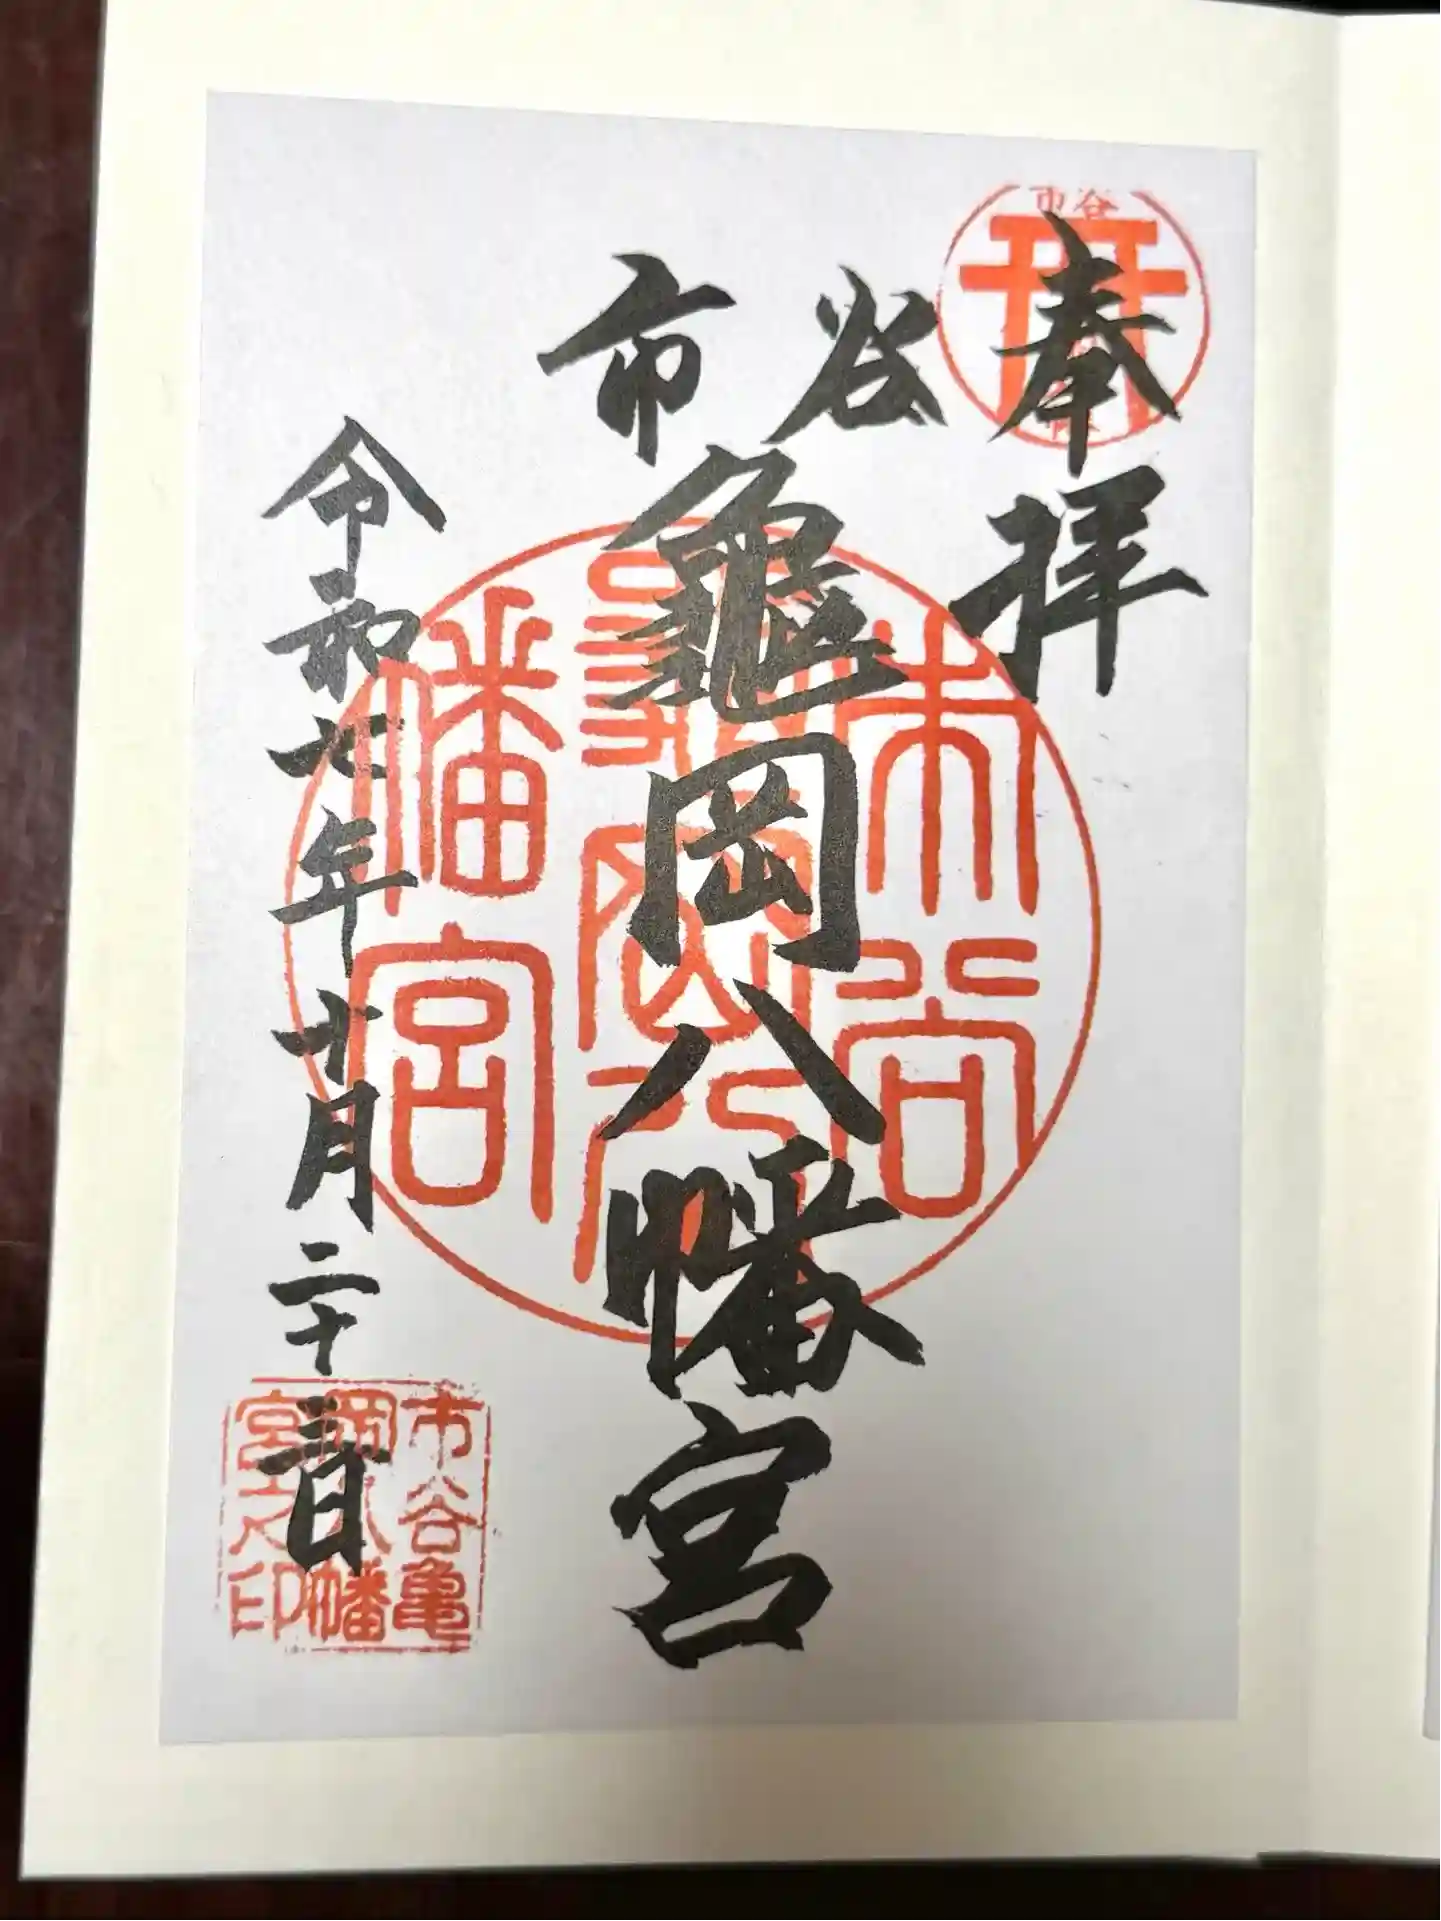 奉拝
市谷
市谷
龜岡八幡宮
市谷
龜岡八
幡宮
令和七年十月二十三日
市谷亀
岡八幡
宮之印